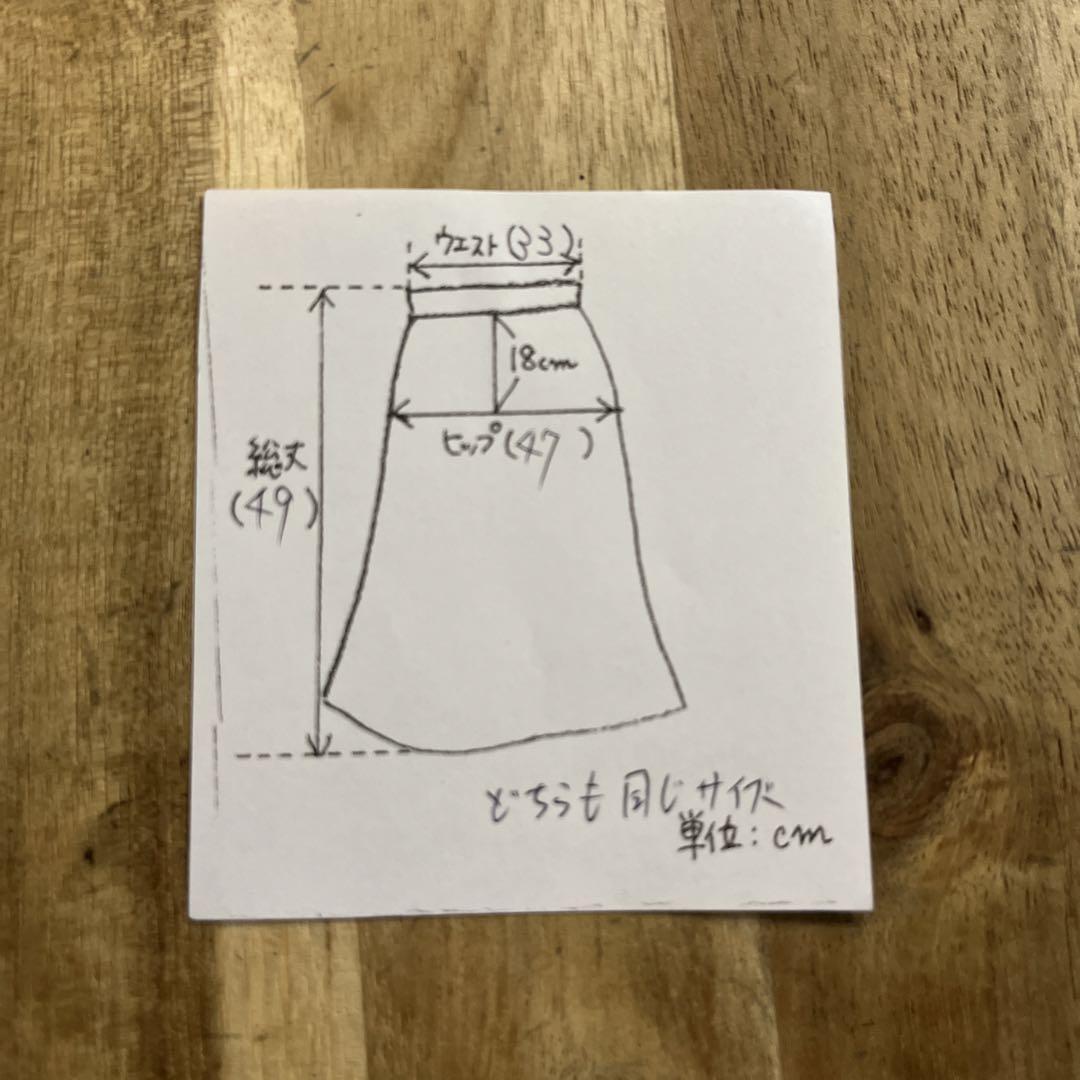 ウエスト(33)
18cm
ヒップ(47)
総丈
(49)
どちらも同じサイズ
単位:cm